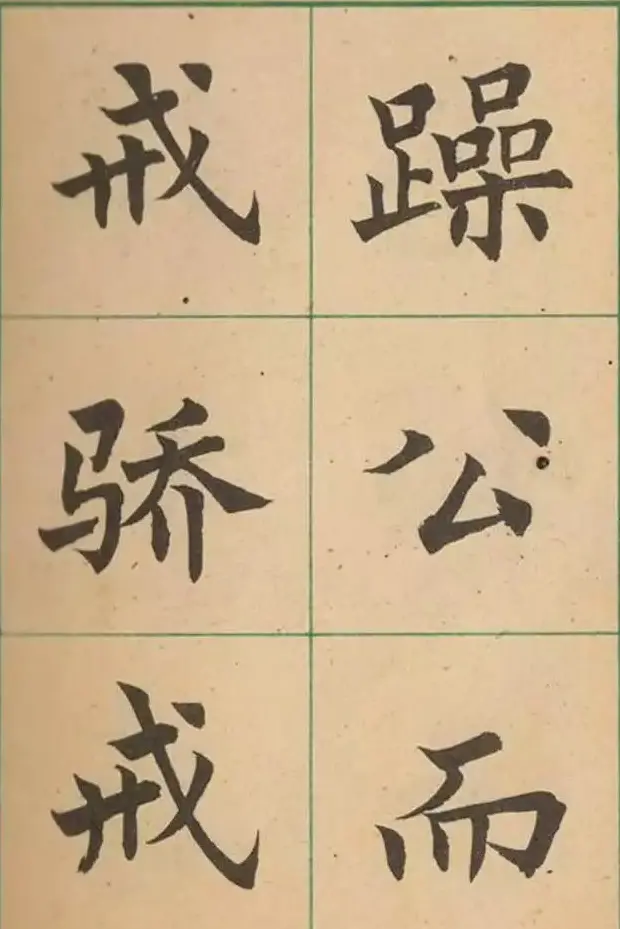 戒骄戒
躁公而